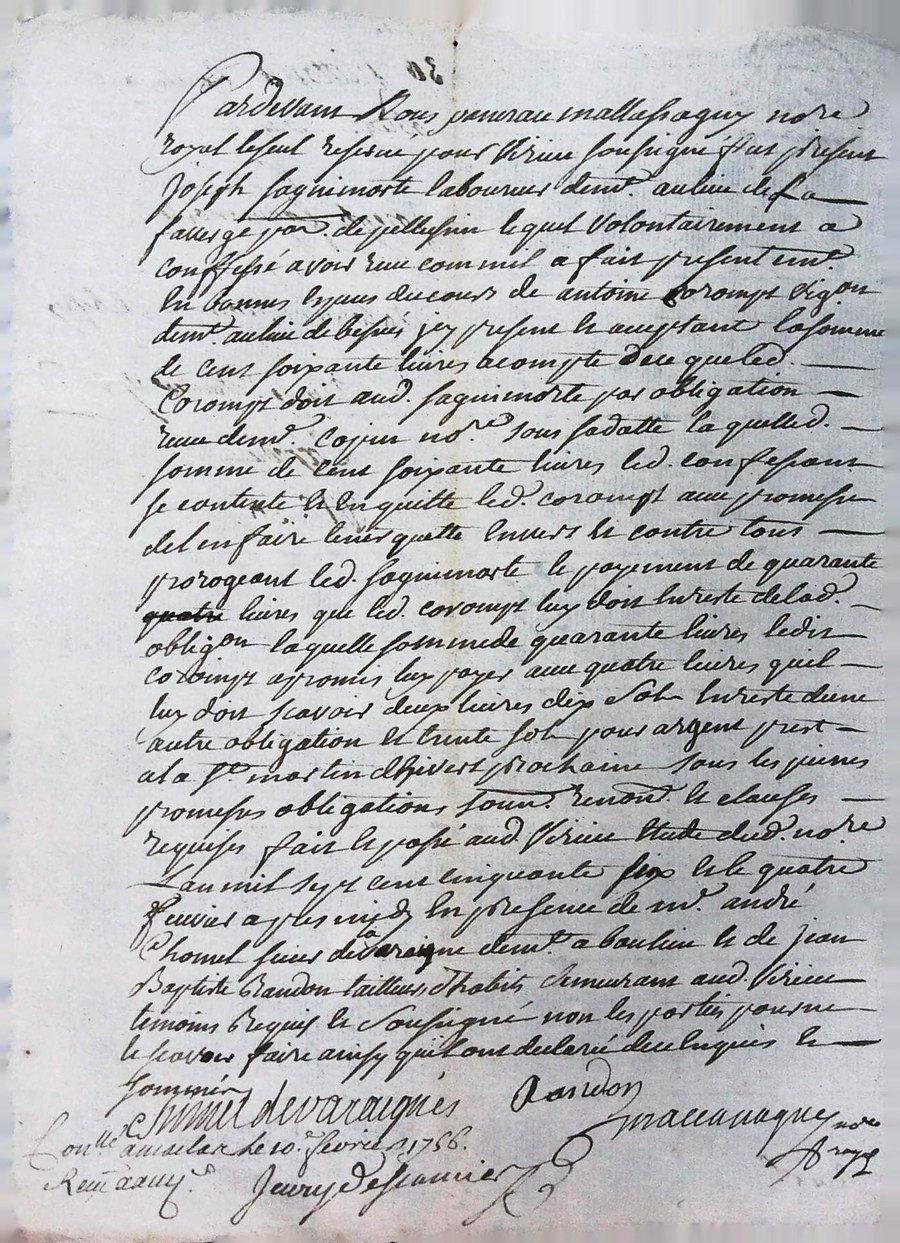 Pardevant Nous pancrace mallassagny no.re
royal et seul reservé pour Virieu soussigné fut present
Joseph faguimorte laboureur dem.t au lieu de La
faverge par. de pellussin lequel Volontairement a
confessé avoir reçu comme il a fait presentem.t
En bonnes Especes du cours de antoine Corompt Vigon
dem.t au lieu de bessés jcy present et acceptant la somme
de cent soixante livres acompte de ce que led.
Corompt doit aud. faguimorte par obligation
reçue de m.e Cojin no.re sous sa datte laquelled.
somme de Cent soixante livres led. confessant
se contente et En quitte led. corompt avec promesse
de l'en faire tenir quitte Envers et contre tous
prorogeant led. faguimorte le payement de quarante
quatre livres que led. corompt luy doit En reste de lad.
obligon laquelle somme de quarante livres ledit
corompt a promis luy payer avec quatre livres quil
luy doit scavoir deux livres dix Sols En reste d'une
autre obligation et trente sols pour argent prest
a la S.t martin d'hivert prochaine sous les peines
promesses obligations soum. renon. et clauses
requises fait et passé aud. Virieu Etude dud. no.re
L'an mil sept cent cinquante six et le quatre
fevrier apres midy En presence de m.r andré
Chomel sieur de varaigne dem.t a boulieu et de jean
Baptiste Randon tailleur d'habits demeurant aud. Virieu
temoins Requis et Soussigné non les parties pour ne
le scavoir faire ainsy quils ont declaré de ce Enquis et
sommés
Chomel de varaignes Randon
mallassagny no.re
royal
Con.llé a le 10.e fevrier 1756
Reçu